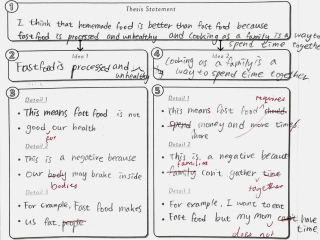 1
Thesis Statement
I think that homemade food is better than fast food because
fast food is processed and unhealthy and cooking as a family is a way to
spend time together
2
Idea 1
Fast food is processed and
unhealthy
4
Idea 2
Cooking as a family is a
way to spend time together
3
Detail 1
• This means fast food is not
• good our health
for
Detail 2
• This is a negative because
• Our body may brake inside
bodies
Detail 3
• For example, Fast food makes
• us fat people
5
Detail 1
requires
• This means fast food should
• spend money and more time
share
Detail 2
• This is a negative because
families
• family can't gather time
together
Detail 3
• For example, I want to eat
• Fast food but my mom can't have
does not
time.